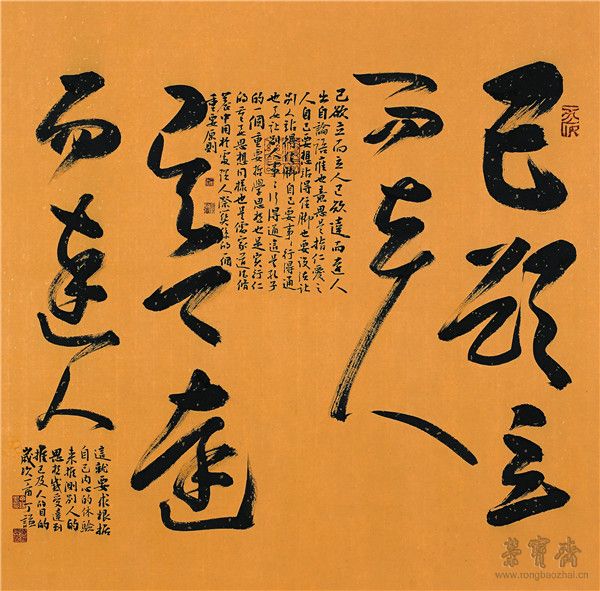 己欲立
而立人
己欲立而立人己欲達而達人
出自論語雍也意思是指仁愛之
人自己要想站得住脚也要設法讓
别人站得住脚自己要事事行得通
也要讓别人事事行得通這是孔子
的一個重要哲學思想也是實行仁
的重要思想同樣也是儒家道德修
養中用於處理人際關係的一個
重要原則
己欲達
而達人
這就要求根据
自己内心的体驗
来推測别人的
思想感受達到
推己及人的目的
歲次丁酉
榮寶齋
www.rongbaozhai.cn